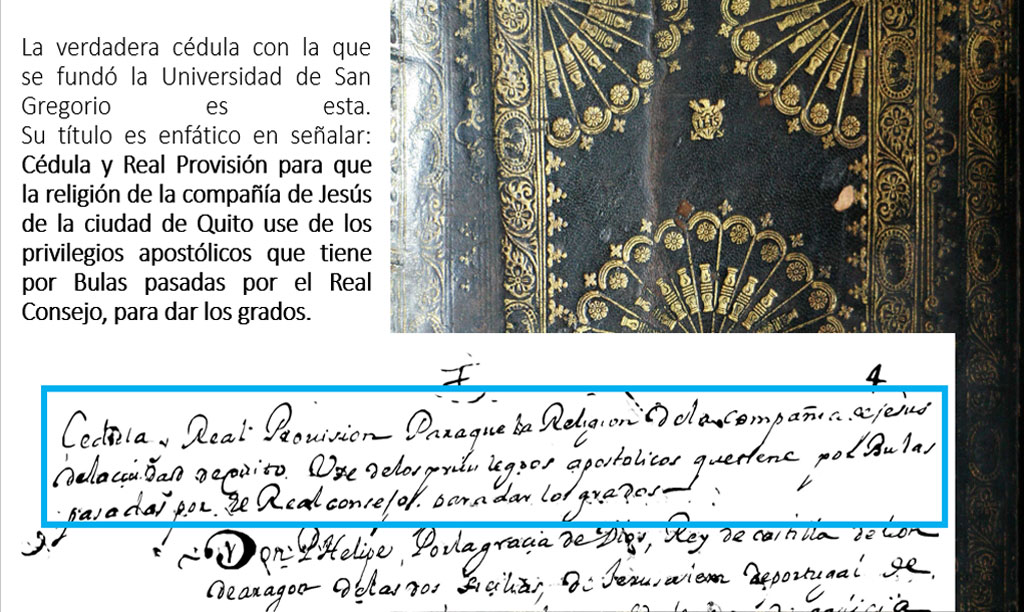 La verdadera cédula con la que
se fundó la Universidad de San
Gregorio es esta.
Su título es enfático en señalar:
Cédula y Real Provisión para que
la religión de la compañía de Jesús
de la ciudad de Quito use de los
privilegios apostólicos que tiene
por Bulas pasadas por el Real
Consejo, para dar los grados.
4
Cedula y Real Provision Paraque la Religion de la Compañia de jesus
delaciudad de quito. Use delos privilegios apostolicos quetiene por Bulas
pasadas por el Real consejo. para dar los grados
Don PHelipe, Porlagracia de Dios, Rey de castilla de leon
dearagon delas dos sicilias, de Jerusalem deportugal de